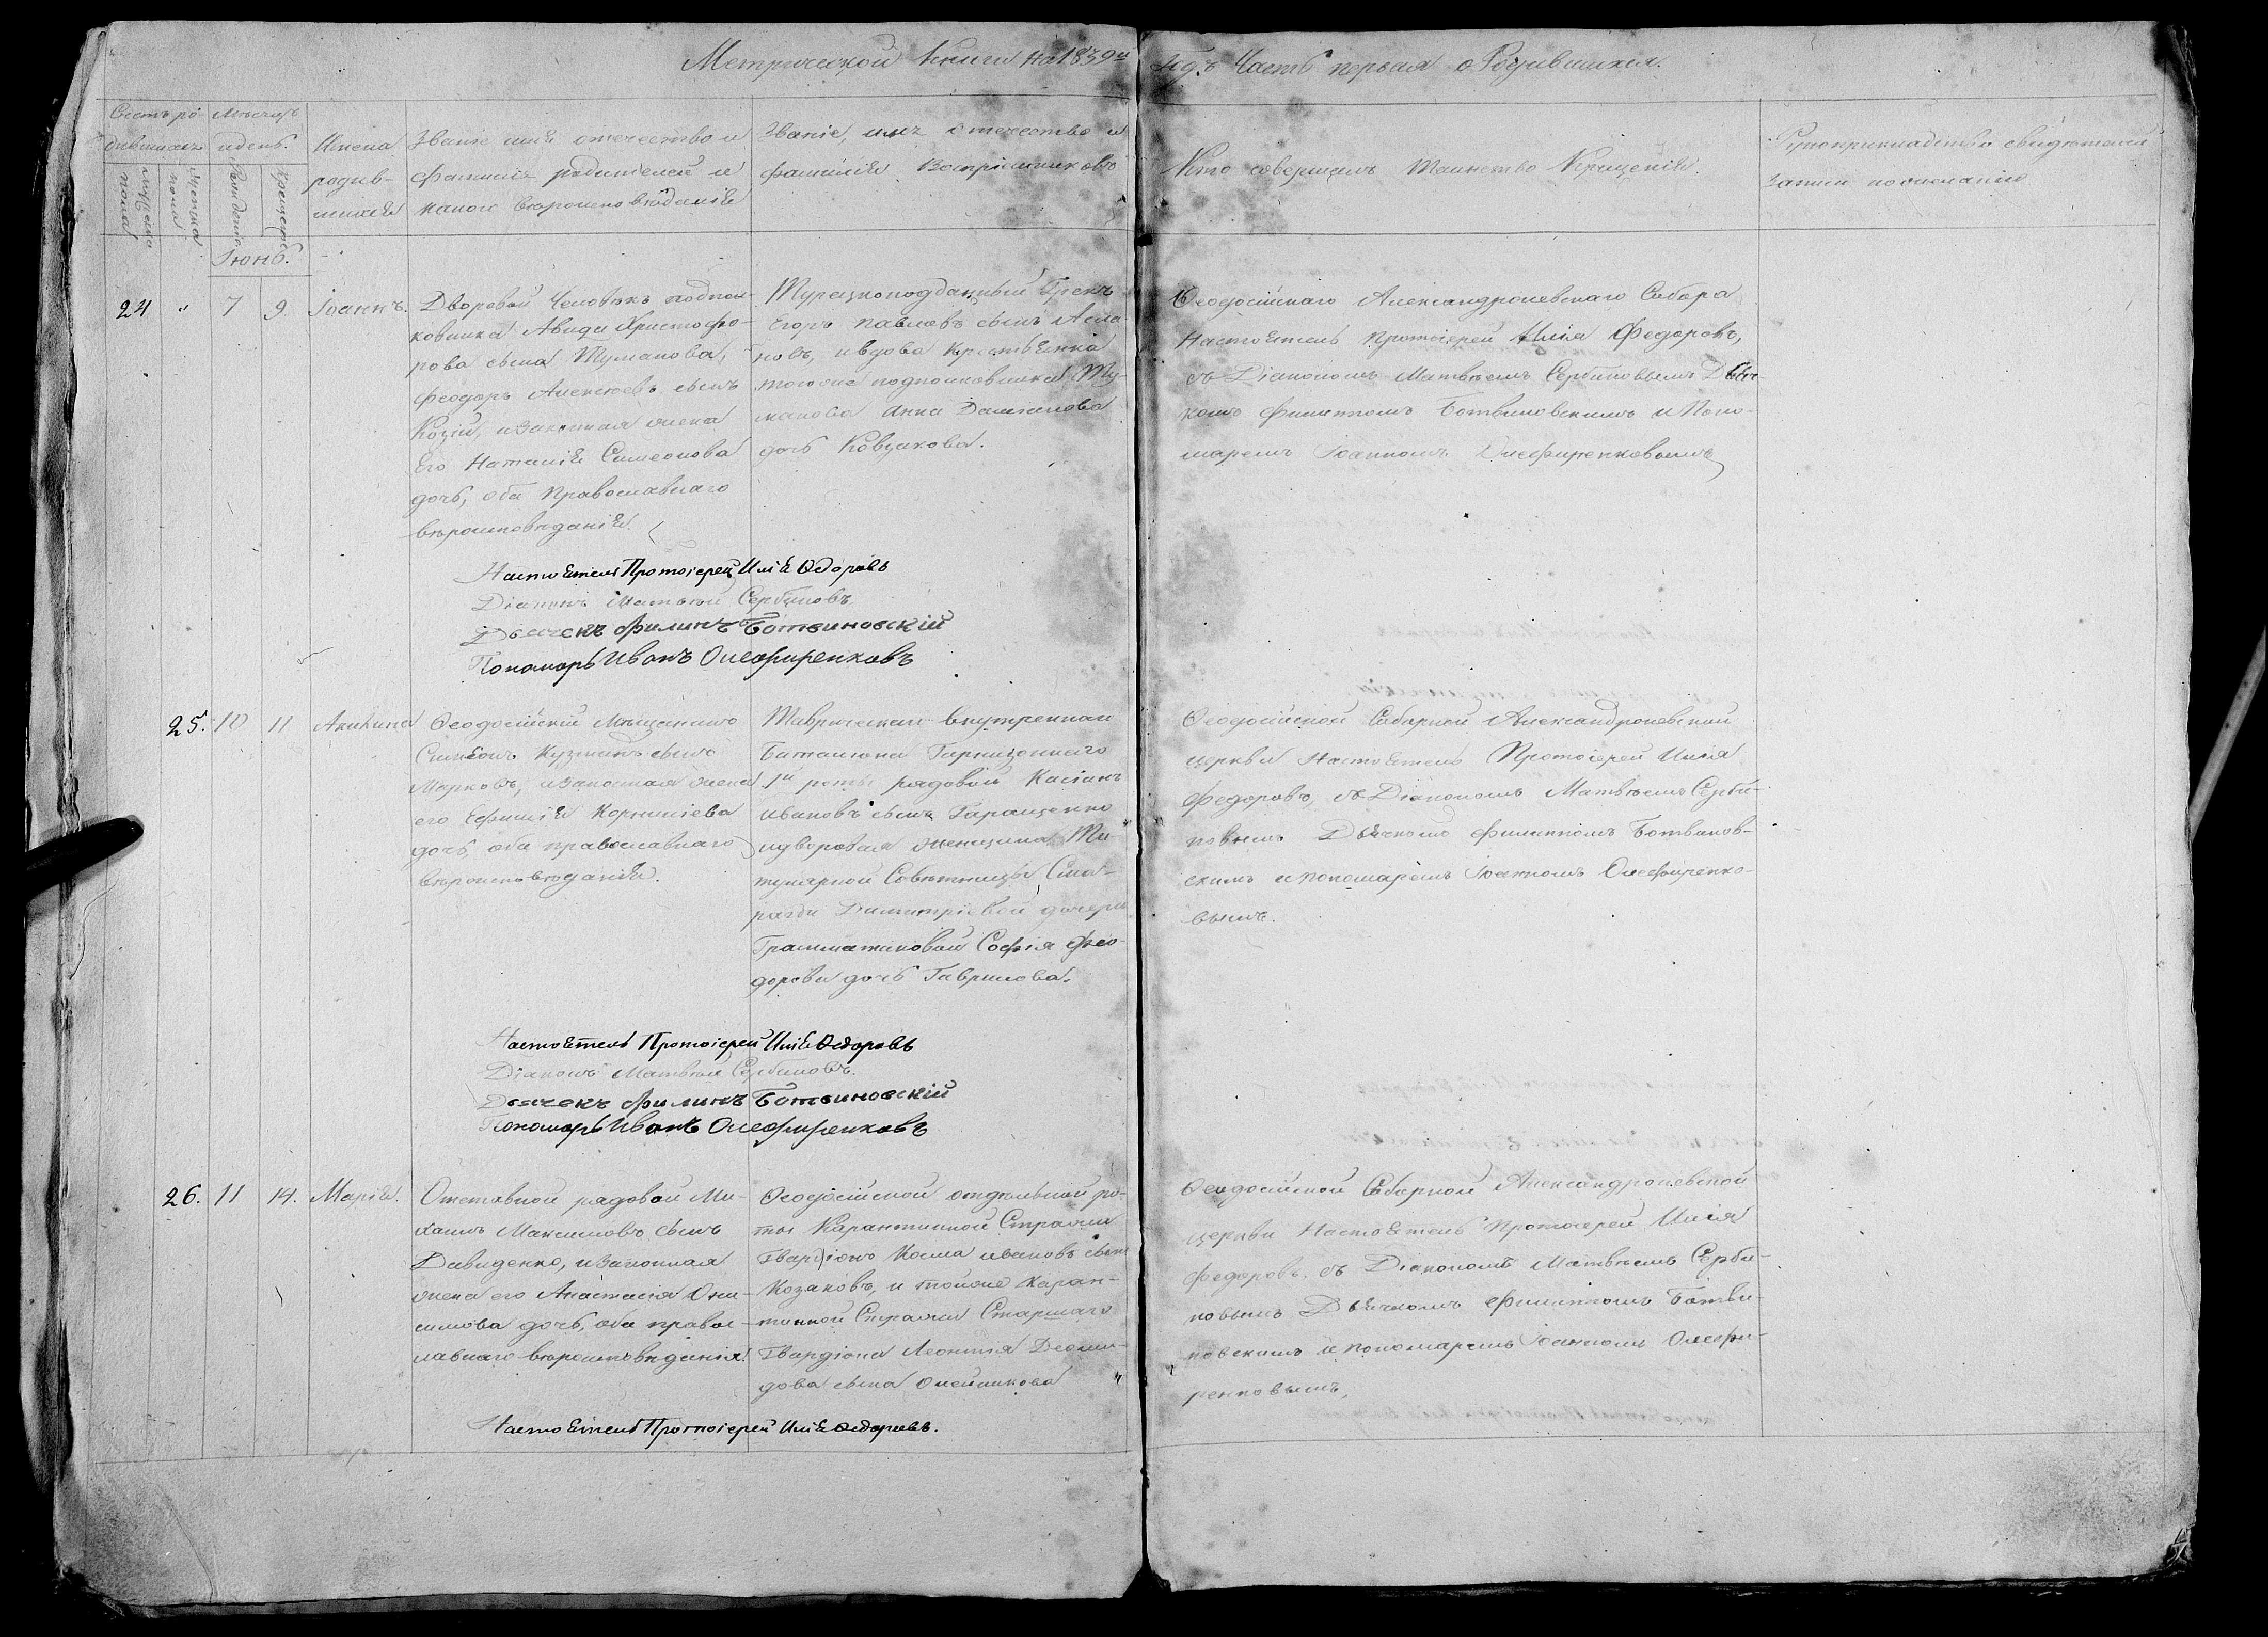 Метрической Книги на 1839й Годъ Часть первая о Родившихся.
Счетъ ро-
дившихся
мужеска
пола
женска
пола
Мѣсяцъ
и день.
Рожденія
Крещенія
Имена
родив-
шихся
Званіе имя отечество и
фамилія родителей и
какого вѣроисповѣданія
Званіе, имя отечество и
фамилія Воспріемниковъ
Кто совершалъ Таинство Крещенія.
Рукоприкладство свидѣтелей
записи по желанію
Іюнь.
24 " 7 9 Іоаннъ.
Дворовой Человѣкъ подпол-
ковника Авида Христофо-
рова сына Туманова,
Феодоръ Алексѣевъ сынъ
Козій, и законная жена
его Наталія Симеонова
дочь, оба Православнаго
вѣроисповѣданія.
Турецкоподданный Грекъ
Егоръ Павловъ сынъ Асла-
новъ, и вдова Крестьянка
тогоже подполковника Ту-
манова Анна Даміанова
дочь Ковзикова.
Ѳеодосійскаго Александроневскаго Собора
Настоятель Протоіерей Илія Федоровъ,
съ Діакономъ Матвѣемъ Сербиновымъ Дьяч-
комъ Филиппомъ Ботвиновскимъ и Поно-
маремъ Іоанномъ Олефиренковымъ
Настоятель Протоіерей Илія Ѳедоровъ
Діаконъ Матвѣй Сербиновъ.
Дьячекъ Филипъ Ботвиновскій
Пономарь Иванъ Олефиренковъ
25. 10 11 Акилина
Ѳеодосійскій Мѣщанинъ
Симеонъ Кузминъ сынъ
Марковъ, и законная жена
его Ефимія Корниліева
дочь, оба православнаго
вѣроисповѣданія.
Таврическаго внутренняго
Баталіона Гарнизоннаго
1й роты рядовой Касіанъ
Ивановъ сынъ Гаращенко
и дворовая женщина Ти-
тулярной Совѣтницы Сма-
рагды Димитріевой дочери
Грамматиковой Софія Фео-
дорова дочь Гаврилова.
Ѳеодосійской Соборной Александроневской
церкви Настоятель Протоіерей Илія
Федоровъ, съ Діакономъ Матвѣемъ Серби-
новымъ Дьячкомъ Филиппомъ Ботвинов-
скимъ и пономаремъ Іоанномъ Олефиренко-
вымъ.
Настоятель Протоіерей Илія Ѳедоровъ
Діаконъ Матвѣй Сербиновъ.
Дьячекъ Филипъ Ботвиновскій
Пономарь Иванъ Олефиренковъ
26. 11 14. Марія.
Отставной рядовой Ми-
хаилъ Максимовъ сынъ
Давиденко, и законная
жена его Анастасія Они-
симова дочь, оба правос-
лавнаго вѣроисповѣданія.
Ѳеодосійской отдѣльной ро-
ты Карантинной Стражи
Гвардіонъ Косма Ивановъ сынъ
Козаковъ, и тойже Каран-
тинной Стражи Старшаго
Гвардіона Леонтія Деоми-
дова сына Олейникова
Ѳеодосійской Соборной Александроневской
церкви Настоятель Протоіерей Илія
Федоровъ, съ Діакономъ Матвѣемъ Серби-
новымъ Дьячкомъ Филиппомъ Ботви-
новскимъ и пономаремъ Іоанномъ Олефи-
ренковымъ,
Настоятель Протоіерей Илія Ѳедоровъ.